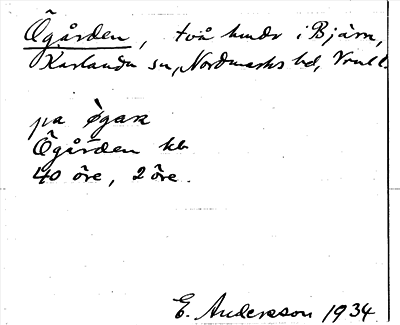 Ögården, två hmdr i Bjärn,
Karlanda sn, Nordmarks hd, Vrml l.
pa øgaɴ
Ögården kb
40 öre, 2 öre.
E. Andersson 1934